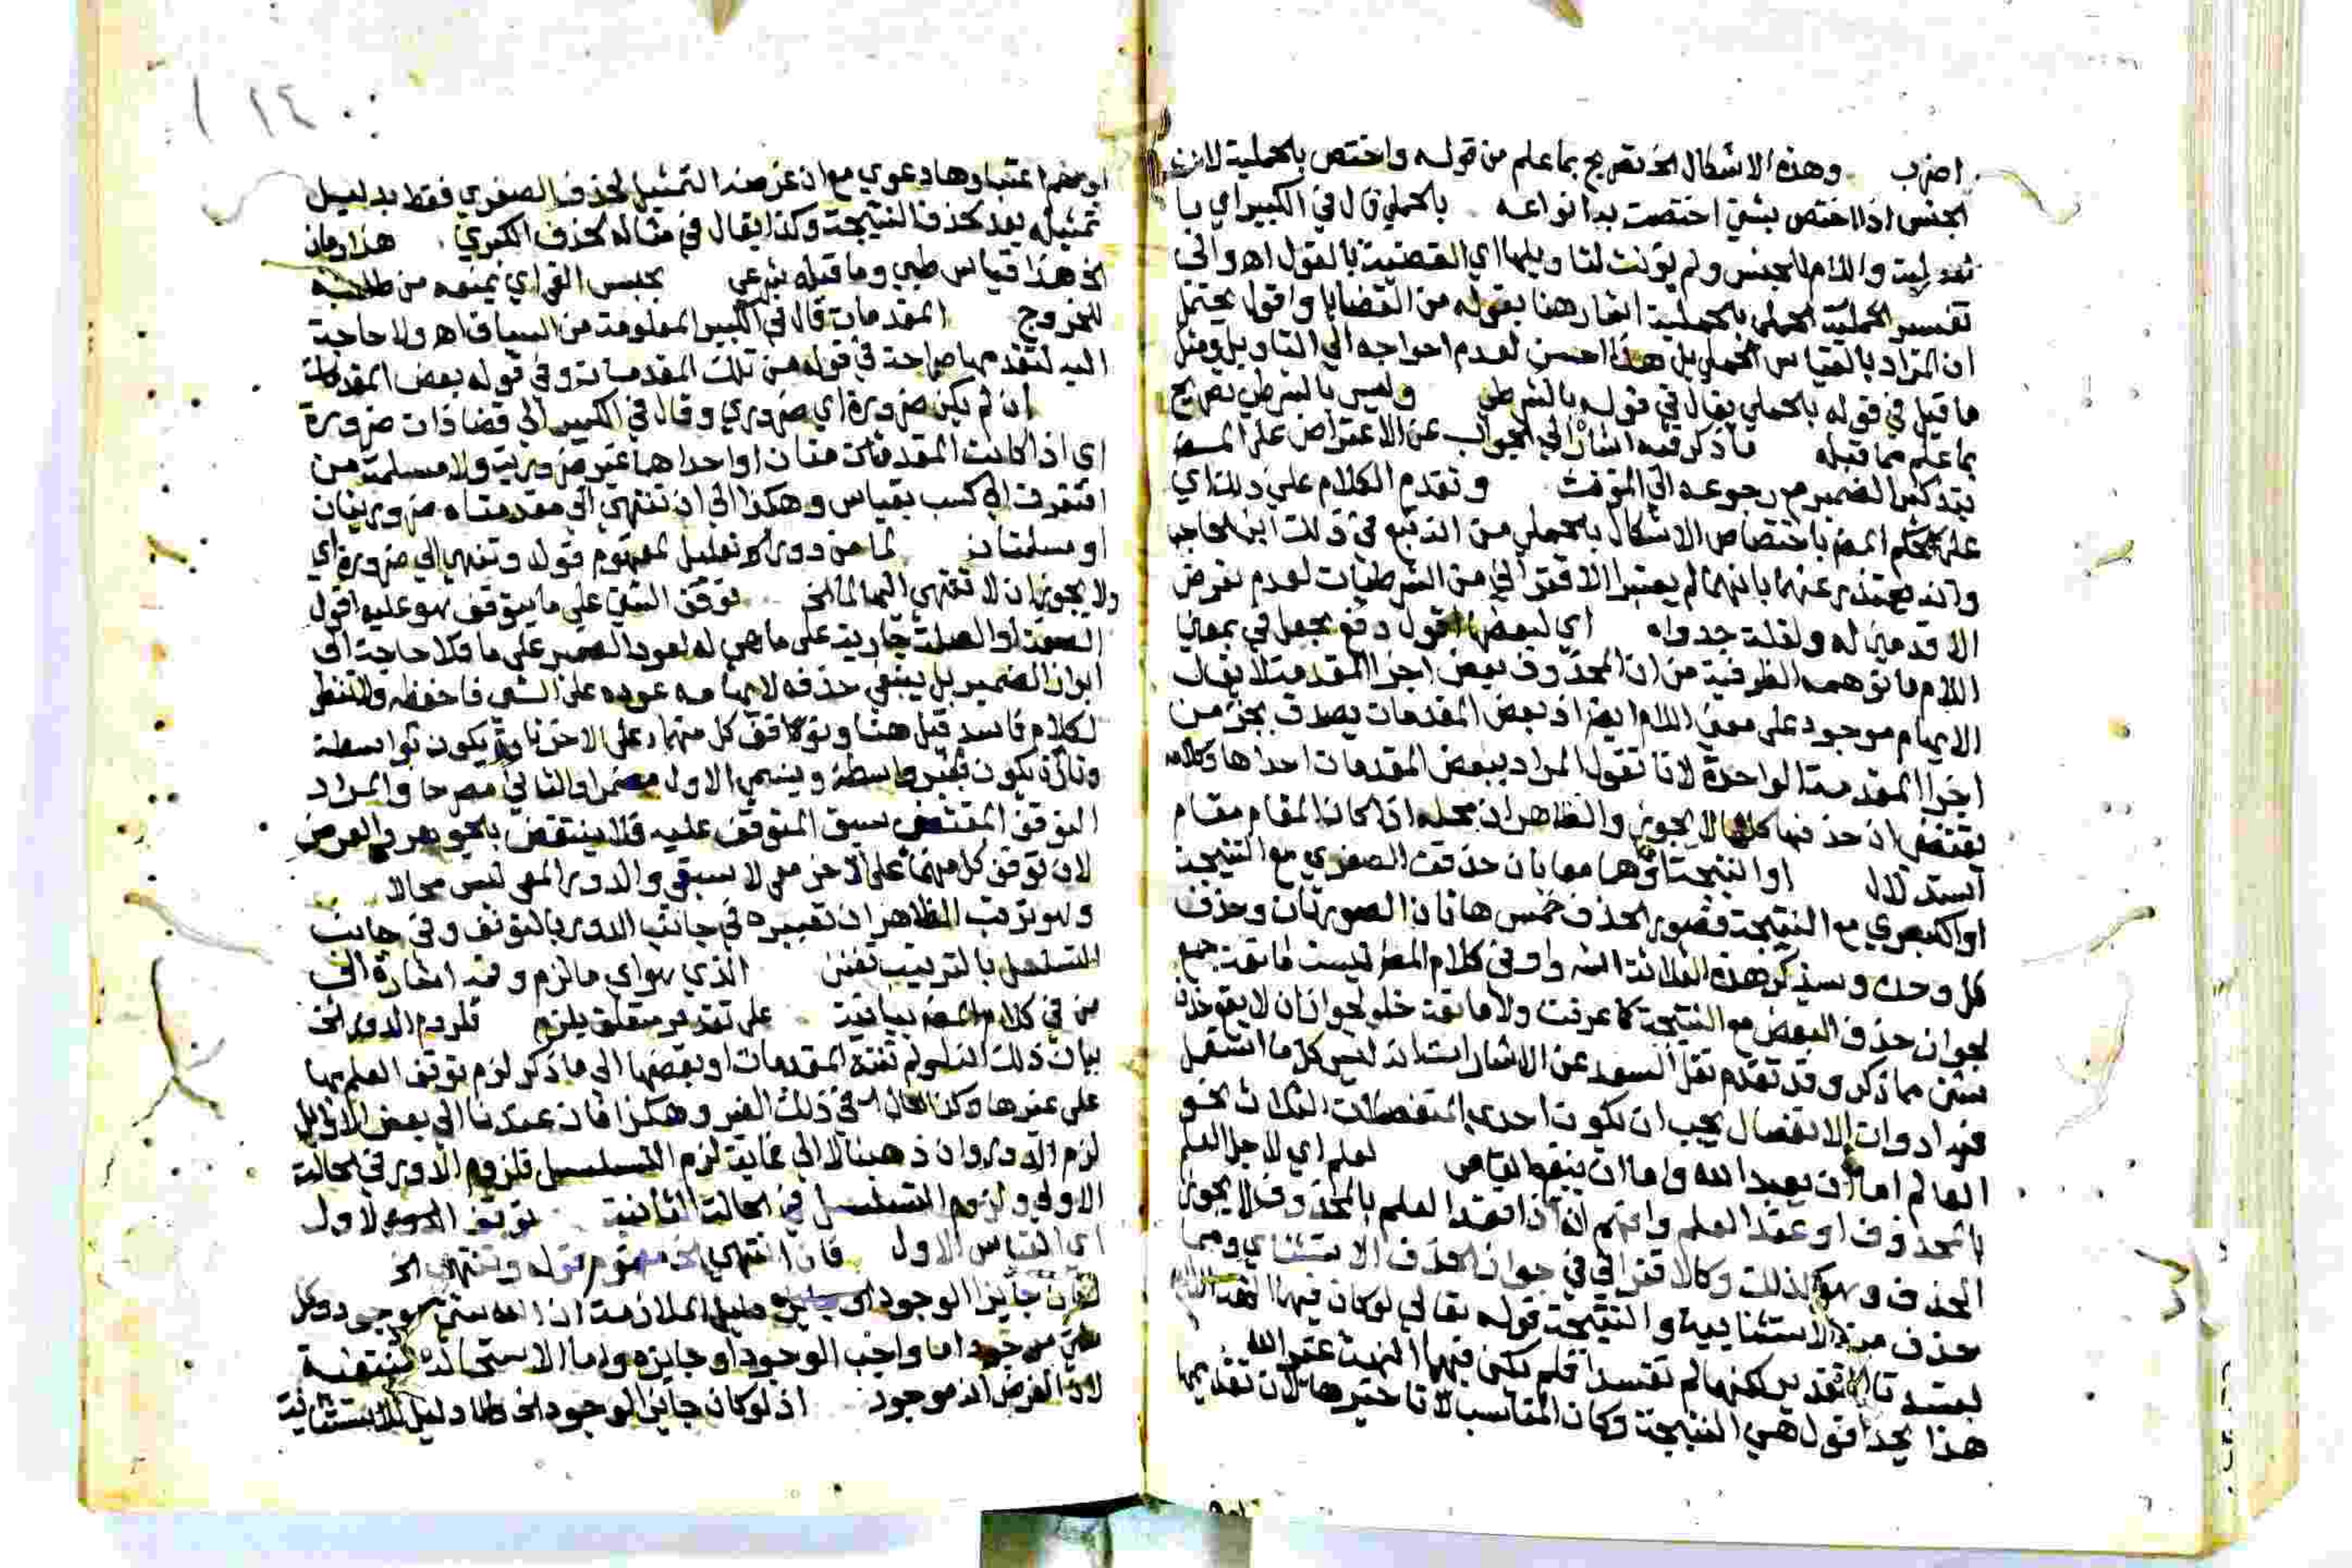 اضرب وهذه الاشكال الخ تصريح بما علم من قوله واختص بالحملية لان
الجنس اذا اختص بشيء اختصت به انواعه بالحملي قال في الكبير اي با
لقولية واللام للجنس ولم يؤنث لتاويلها اي القضية بالقول اهـ والى
تفسير الحملي بالحملية اشار هنا بقوله من القضايا واقول يحتمل
ان المراد بالقياس الحملي بل هذا احسن لعدم احواجه الي التاويل ومثل
ما قيل في قوله بالحملي يقال في قوله بالشرطي وليس بالشرطي تصريح
بما علم مما قبله ما ذكر فيه اشار الي الجواب عن الاعتراض على المصنف
بتذكير الضمير مع رجوعه الي المؤنث وتقدم الكلام علي ذلك اي
على حكم المصنف باختصاص الاشكال بالحملي من انه تبع في ذلك ابن الحاجب
وانه يعتذر عنهما بانهما لم يعتبرا الاقتراني من الشرطيات لعدم تعرض
الاقدمين له ولقلة جدواه اي لبعضها اقول دفع بجعل في بمعني
اللام ما توهمه الظرفية من ان المحذوف بعض اجزا المقدمة لا يقال
الايهام موجود على معنى اللام ايضا اذ بعض المقدمات يصدق بجزء من
اجزا المقدمة الواحدة لانا نقول المراد ببعض المقدمات احداها وكلامه
يقتضي ان حذفها كلها لا يجوز والظاهر ان محله اذا كان المقام مقام
استدلال او النتيجة او هما معا بان حذفت الصغري مع النتيجة
او الكبري مع النتيجة فصور الحذف خمس هاتان الصورتان وحذف
كل وحده وسيذكر هذه الثلاثة الشه واو في كلام المصنف ليست مانعة جمع
لجواز حذف البعض مع النتيجة كما عرفت ولا مانعة خلو لجواز ان لا يحذف
شيء مما ذكر وقد تقدم نقل السعد عن الاشارات انه ليس كل ما استعمل
فيه ادوات الانفصال يجب ان يكون احدي المنفصلات الثلاث نحو
العالم اما ان يعبد الله واما ان ينفع الناس لعلم اي لاجل العلم
بالمحذوف او عند العلم وافهم انه اذا فقد العلم بالمحذوف لا يجوز
الحذف وهو كذلك وكالاقتراني في جواز الحذف الاستثناي ومما
حذف منه الاستثنايية والنتيجة قوله تعالي لو كان فيهما الهة الا الله
لفسدتا التقدير لكنهما لم تفسدا فلم تكن فيهما الهة غير الله
هذا يحد اقول هي النتيجة وكان المناسب لا تاخيرها لان تقديمها
١٤٠
او يخم اعتبارها دعوي مع ان غرضه التمثيل لحذف الصغري فقط بدليل
تمثيله بعد بحذف النتيجة وكذا يقال في مثاله لحذف الكبري هذا زمان
الخ هذا قياس طبي وما قبله شرعي بحبس القي اي يمنعه من طلبه
للخروج المقدمات قال في الكبير المعلومة من السياق اهـ ولا حاجة
اليه لتقدمها صراحة في قوله من تلك المقدمات وفي قوله بعض المقدمات
ان لم يكن ضرورة اي ضروري وقال في الكبير الي قضا ذات ضرورة
اي اذا كانت المقدمتان او احداهما غير ضرورية ولا مسلمة من
افتقرت الي كسب بقياس وهكذا الي ان تنتهي الي مقدمتان ضروريتان
او مسلمتان لما من دور تعليل لمفهوم قوله وتنتهي الي ضرورة اي
ولا يجوز ان لا تنتهي اليها لما الخ توقف الشيء علي ما يتوقف هو عليه اقول
الصفة او الصلة جارية على ما هي له لعود الضمير على ما فلا حاجة الى
ابراز الضمير بل ينبغي حذفه لايهامه عوده على الشي فاحفظه ولا تنظر
لكلام فاسد قيل هنا وتوقف كل منهما على الاخر تارة يكون بواسطة
وتارة يكون بغير واسطة ويسمي الاول مضمرا والثاني مصرحا والمراد
التوقف المقتضي سبق المتوقف عليه فلا ينتقض بالجوهر والعرض
لان توقف كل منهما على الاخر معي لا سبقي والدور المعي ليس محالا
وهو ترتب الظاهر ان تعبيره في جانب الدور بالتوقف وفي جانب
التسلسل بالترتيب تفنن الذي هو اي ما لزم وفيه اشارة الى
من في كلام المصنف بيانية على تقدير متعلق يلزم فلزوم الدور الخ
بيان ذلك انه لو لم تنته المقدمات او بعضها الى ما ذكر لزم توقف العلم بها
على غيرها وكذا يقال في ذلك الغير وهكذا فان عدنا الي بعض الاوايل
لزم الدور وان ذهبنا لا الي غاية لزم التسلسل فلزوم الدور في الحالة
الاولي ولزوم التسلسل في الحالة الثانية توقف الاول
اي القياس الاول فان انتهي الخ مفهوم قوله وتنتهي الخ
لكان جايز الوجود دليل الملازمة ان الله شي موجود وكل
شي موجود اما واجب الوجود او جايزه واما الاستحالة فمنتفية
لان الفرض انه موجود اذ لو كان جايز الوجود الخ هذا دليل للاستثنائية